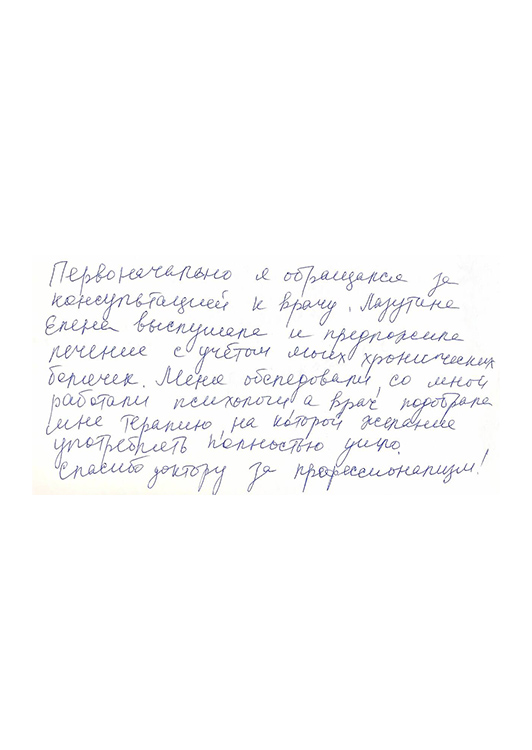 Первоначально я обращался за
консультацией к врачу. Лазутина
Елена выслушала и предложила
лечение с учётом моих хронических
болячек. Меня обследовали, со мной
работали психологи а врач подобрала
мне терапию, на которой желание
употреблять полностью ушло.
Спасибо доктору за профессионализм!